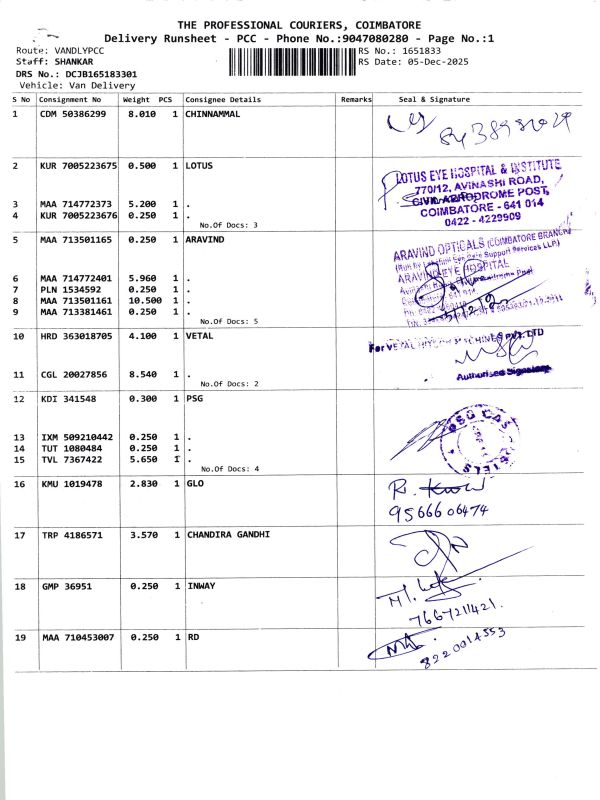 THE PROFESSIONAL COURIERS, COIMBATORE
Delivery Runsheet - PCC - Phone No.:9047080280 - Page No.:1
Route: VANDLYPCC RS No.: 1651833
Staff: SHANKAR RS Date: 05-Dec-2025
DRS No.: DCJB165183301
Vehicle: Van Delivery
S No Consignment No Weight PCS Consignee Details Remarks Seal & Signature
1 CDM 50386299 8.010 1 CHINNAMMAL
2 KUR 7005223675 0.500 1 LOTUS
LOTUS EYE HOSPITAL & INSTITUTE
770/12, AVINASHI ROAD,
CIVIL AERODROME POST,
COIMBATORE - 641 014
0422 - 4229909
3 MAA 714772373 5.200 1 .
4 KUR 7005223676 0.250 1 .
No.Of Docs: 3
5 MAA 713501165 0.250 1 ARAVIND
ARAVIND OPTICALS (COIMBATORE BRANCH)
ARAVIND EYE HOSPITAL
6 MAA 714772401 5.960 1 .
7 PLN 1534592 0.250 1 .
8 MAA 713501161 10.500 1 .
9 MAA 713381461 0.250 1 .
No.Of Docs: 5
10 HRD 363018705 4.100 1 VETAL
For VETAL MACHINES PVT. LTD
Authorised Signatory
11 CGL 20027856 8.540 1 .
No.Of Docs: 2
12 KDI 341548 0.300 1 PSG
13 IXM 509210442 0.250 1 .
14 TUT 1080484 0.250 1 .
15 TVL 7367422 5.650 1 .
No.Of Docs: 4
16 KMU 1019478 2.830 1 GLO
9566606474
17 TRP 4186571 3.570 1 CHANDIRA GANDHI
18 GMP 36951 0.250 1 INWAY
7667211421.
19 MAA 710453007 0.250 1 RD
8220014553